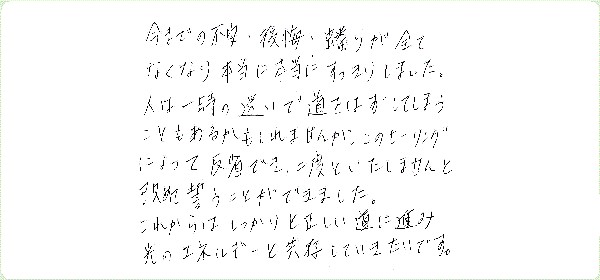 今までの不安・後悔・蟠りが全て
なくなり本当に本当にすっきりしました。
人は一時の迷いで道をはずしてしまう
こともあるかもしれませんが、このヒーリング
によって反省でき、二度といたしませんと
誓うことができました。
これからはしっかりと正しい道に進み
光のエネルギーと共存していきたいです。